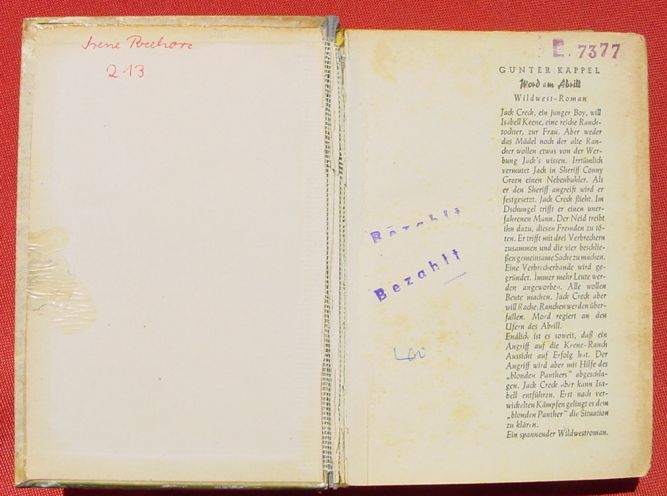 Irene
213
E. 7377
GUNTER KAPPEL
Mord am Abrill
Wildwest-Roman
Jack Creck, ein junger Boy, will
Isabell Keene, eine reiche Ranch-
tochter, zur Frau. Aber weder
das Mädel noch der alte Ran-
cher wollen etwas von der Wer-
bung Jack's wissen. Irrtümlich
vermutet Jack in Sheriff Conny
Green einen Nebenbuhler. Als
er den Sheriff angreift wird er
festgesetzt. Jack Creck flieht. Im
Dschungel trifft er einen uner-
fahrenen Mann. Der Neid treibt
ihn dazu, diesen Fremden zu tö-
ten. Er trifft mit drei Verbrechern
zusammen und die vier beschlie-
ßen gemeinsame Sache zu machen.
Eine Verbrecherbande wird ge-
gründet. Immer mehr Leute wer-
den angeworben. Alle wollen
Beute machen. Jack Creck aber
will Rache. Ranchen werden über-
fallen. Mord regiert an den
Ufern des Abrill.
Endlich ist es soweit, daß ein
Angriff auf die Keene-Ranch
Aussicht auf Erfolg hat. Der
Angriff wird aber mit Hilfe des
„blonden Panthers" abgeschla-
gen. Jack Creck aber kann Isa-
bell entführen. Erst nach ver-
wickelten Kämpfen gelingt es dem
„blonden Panther" die Situation
zu klären.
Ein spannender Wildwestroman.
Bezahlt
Bezahlt